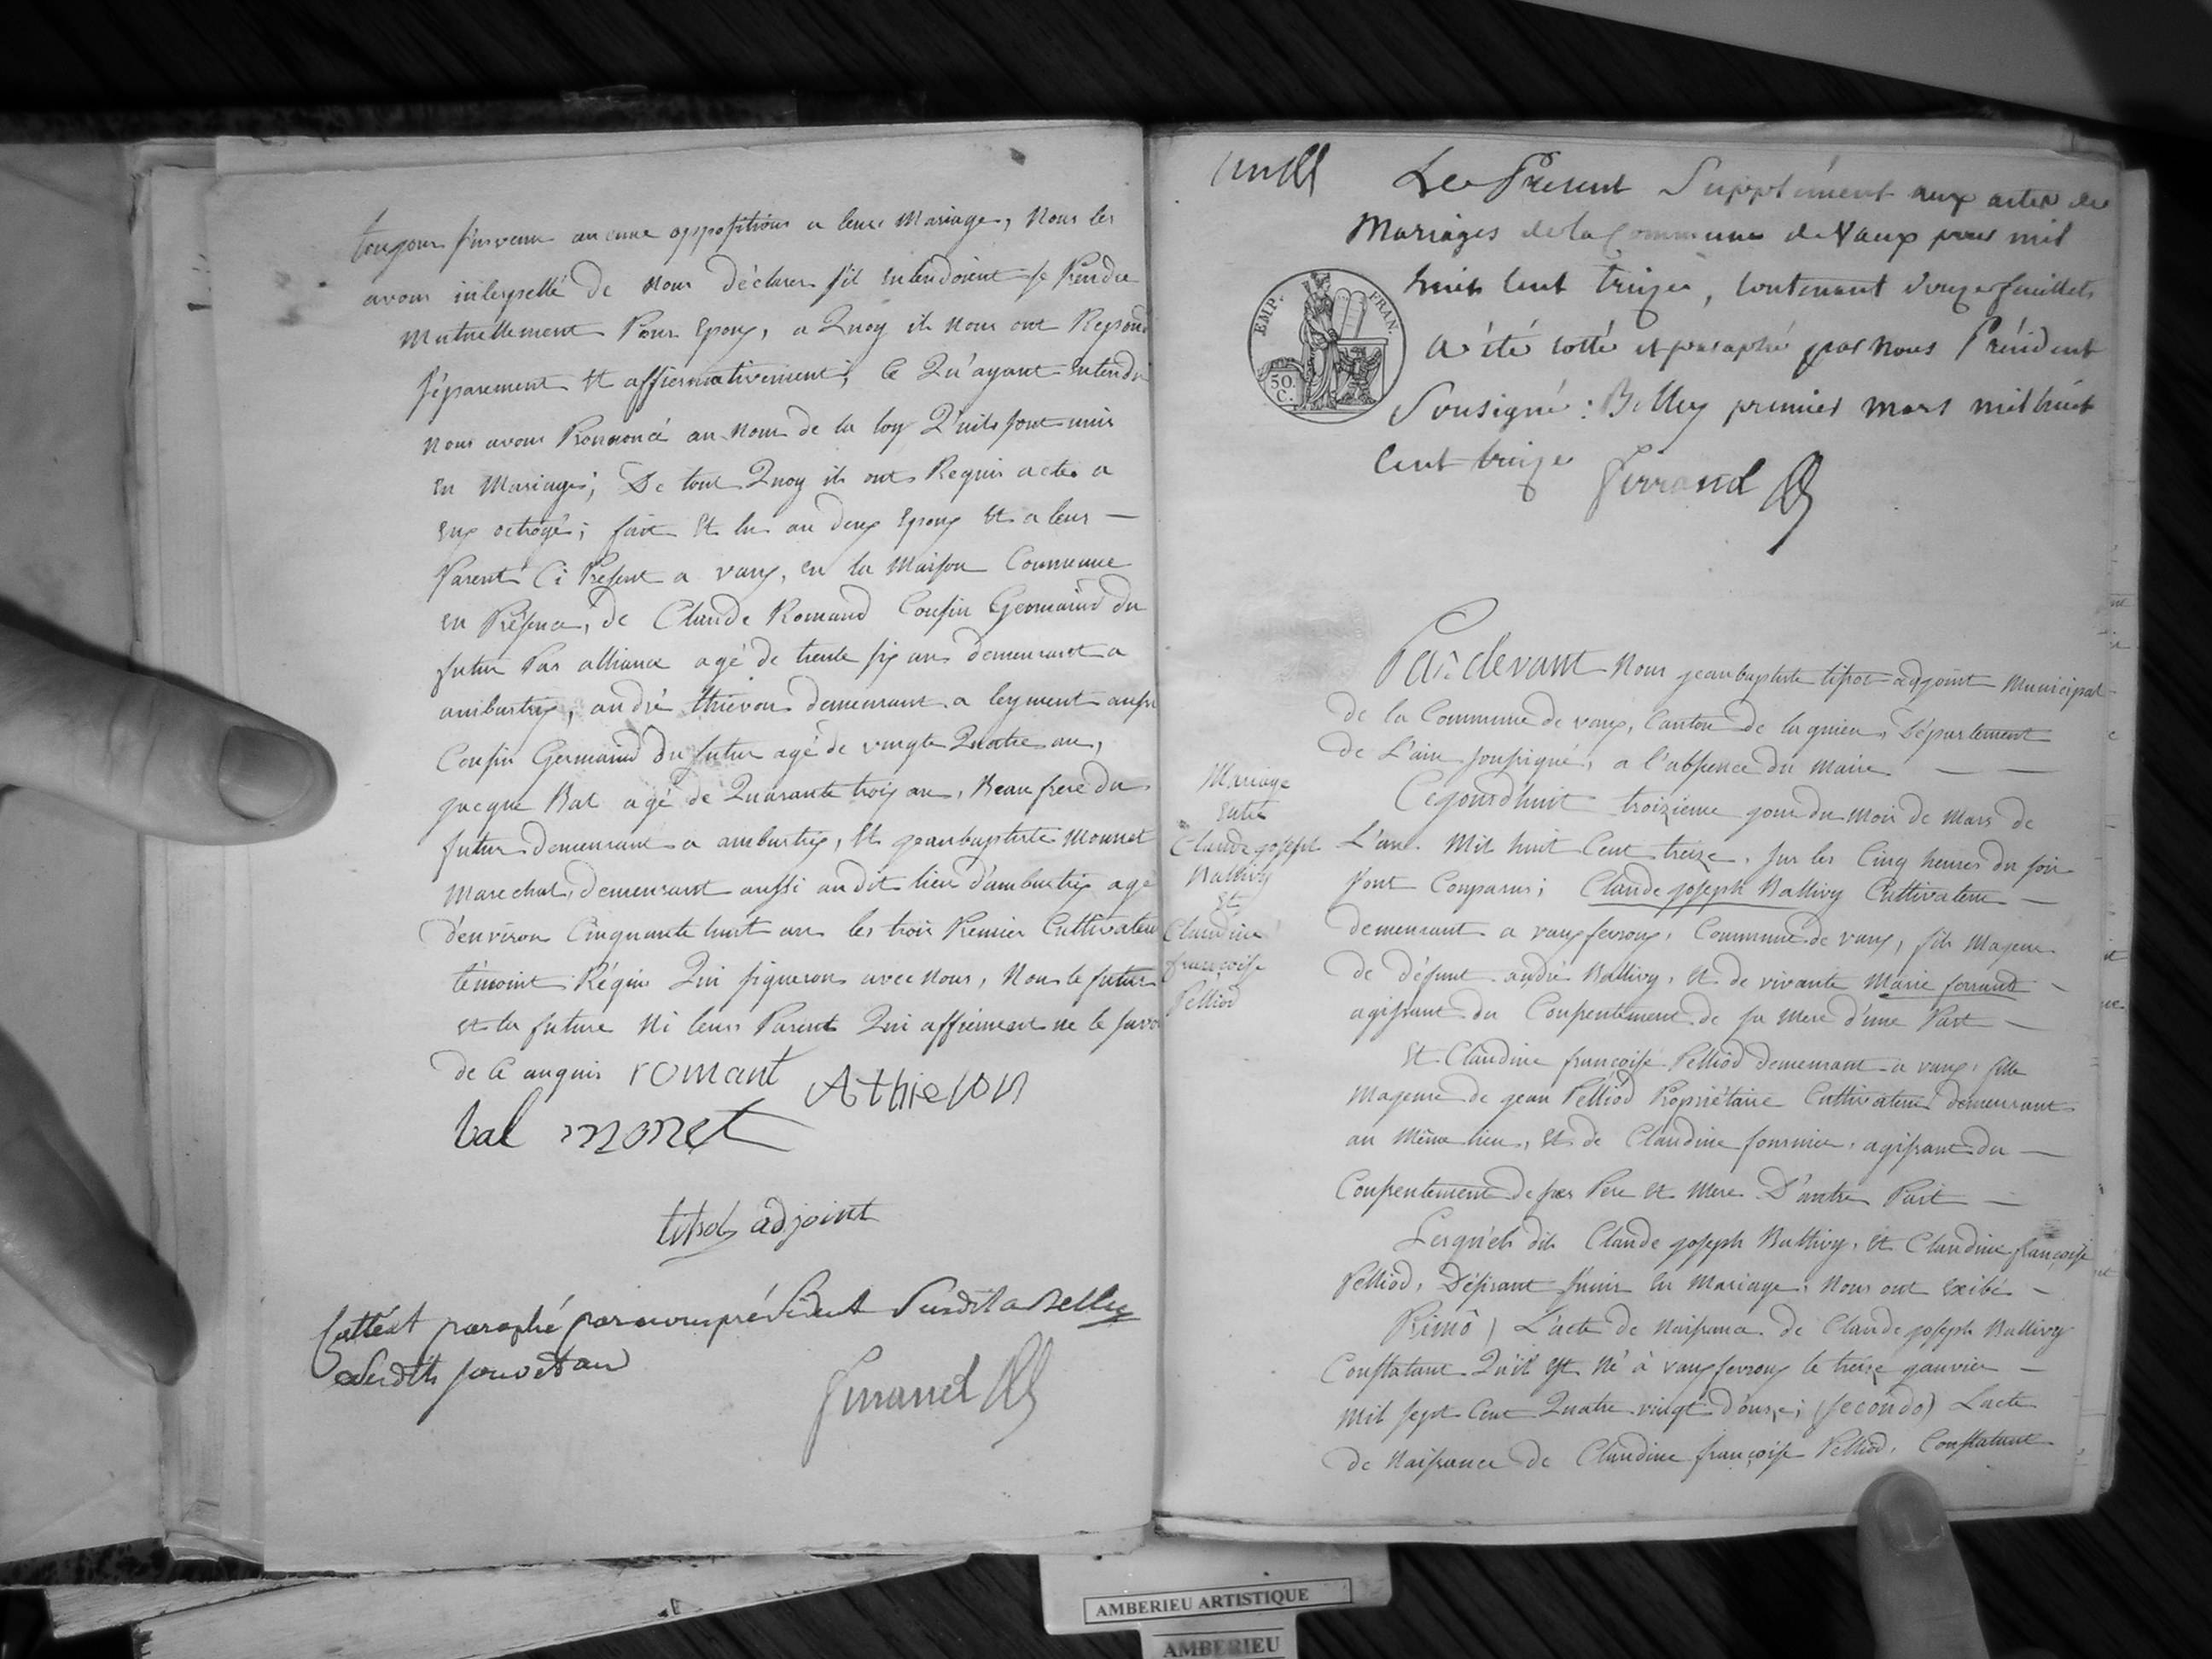 toujours survenu aucune oppositions a leur Mariage, Nous les
avons interpellé de nous déclarer s'il entendoient se Rendre
Mutuellement Pour Epoux, a Quoy ils nous ont Repond
séparement Et affirmativement; Ce Qu'ayant Entendu
nous avons Prononcé au nom de la loy Qu'ils sont unis
en Mariage; De tout Quoy ils ont Requis acte a
Eux octroyé; fait Et lu au deux Epoux Et a leur —
Parent Ci Present a vaux, en la Maison Commune
en Présence, de Claude Romand Cousin Germaind du
futur Par alliance agé de trente six ans demeurant a
ambutrix, andré thievon demeurant a leyment aussi
Cousin Germaind du futur agé de vingte Quatre ans,
jacque Bal agé de Quarante trois ans, Beau frere du
futur demeurant a ambutrix, Et jean baptiste Monnet
Marechal, demeurant aussi audit lieu d'ambutrix age
d'environ Cinquante huit ans les trois Premier Cultivateu
témoint Réquis Qui signerons avec nous, Non le futur
et la future Ni leurs Parent Qui affirment ne le savo
de Ce anquis romant Athievon
bal monet
tissot adjoint
paraphé par nous président Susdit a Belley
Susdits jour et an
Ferrand
Le Present Supplément aux actes de
Mariages de la Commune de Vaux pour mil
huit Cent treize, Contenant douze feuillets
EMP. FRAN.
50. C.
A été cotté et paraphé par nous Président
Sousigné: Belley premier mars mil huit
Cent treize Ferrand
Par devant Nous jean baptiste tissot adjoint Municipal
de la Commune de vaux, Canton de lagnieu, Département
de L'ain soussigné, a l'absence du Maire — —
Cejourd'huit troizieme jour du mois de Mars de
L'an Mil huit Cent treize, sur les Cinq heures du soir
sont Comparus; Claude joseph Ballivy Cultivateur —
demeurant a vaux fevroux, Commune de vaux, fils Majeur
de défunt andré Ballivy, Et de vivante Marie ferrand —
agissant du Consentement de sa Mere d'une Part —
Et Claudine françoise Pelliod demeurant a vaux, fille
Majeure de jean Pelliod Propriétaire Cultivateur demeurant
au Même lieu, Et de Claudine fournier, agissant du —
Consentement de ses Pere Et Mere D'autre Part —
Lesquels dits Claude joseph Ballivy, Et Claudine françoise
Pelliod, Désirant s'unir En Mariage, Nous ont Exibé —
Primô) L'acte de Naissance de Claude joseph Ballivy
Constatant Qu'il Est Né à vaux fevroux le treize janvier —
Mil sept Cent Quatre vingt d'ouze; (secondo) L'acte
de Naissance de Claudine françoise Pelliod, Constatant
Mariage
Entre
Claude joseph
Ballivy
Et
Claudine
françoise
Pelliod
AMBERIEU ARTISTIQUE
AMBERIEU